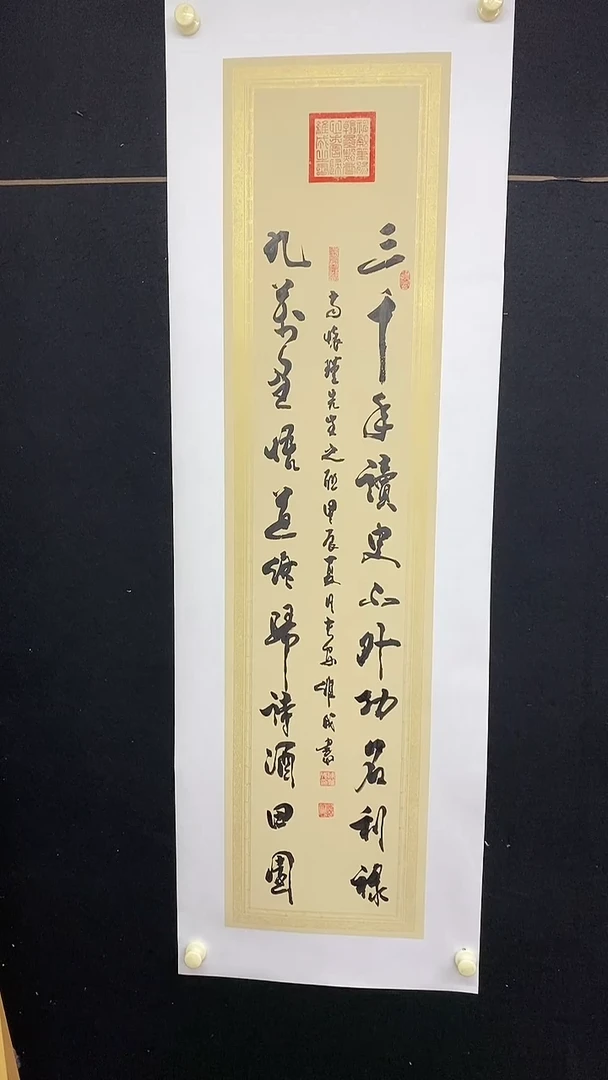 三千年讀史不外功名利祿
南懷瑾先生之聯甲辰夏月長安維成書
九萬里悟道終歸詩酒田園